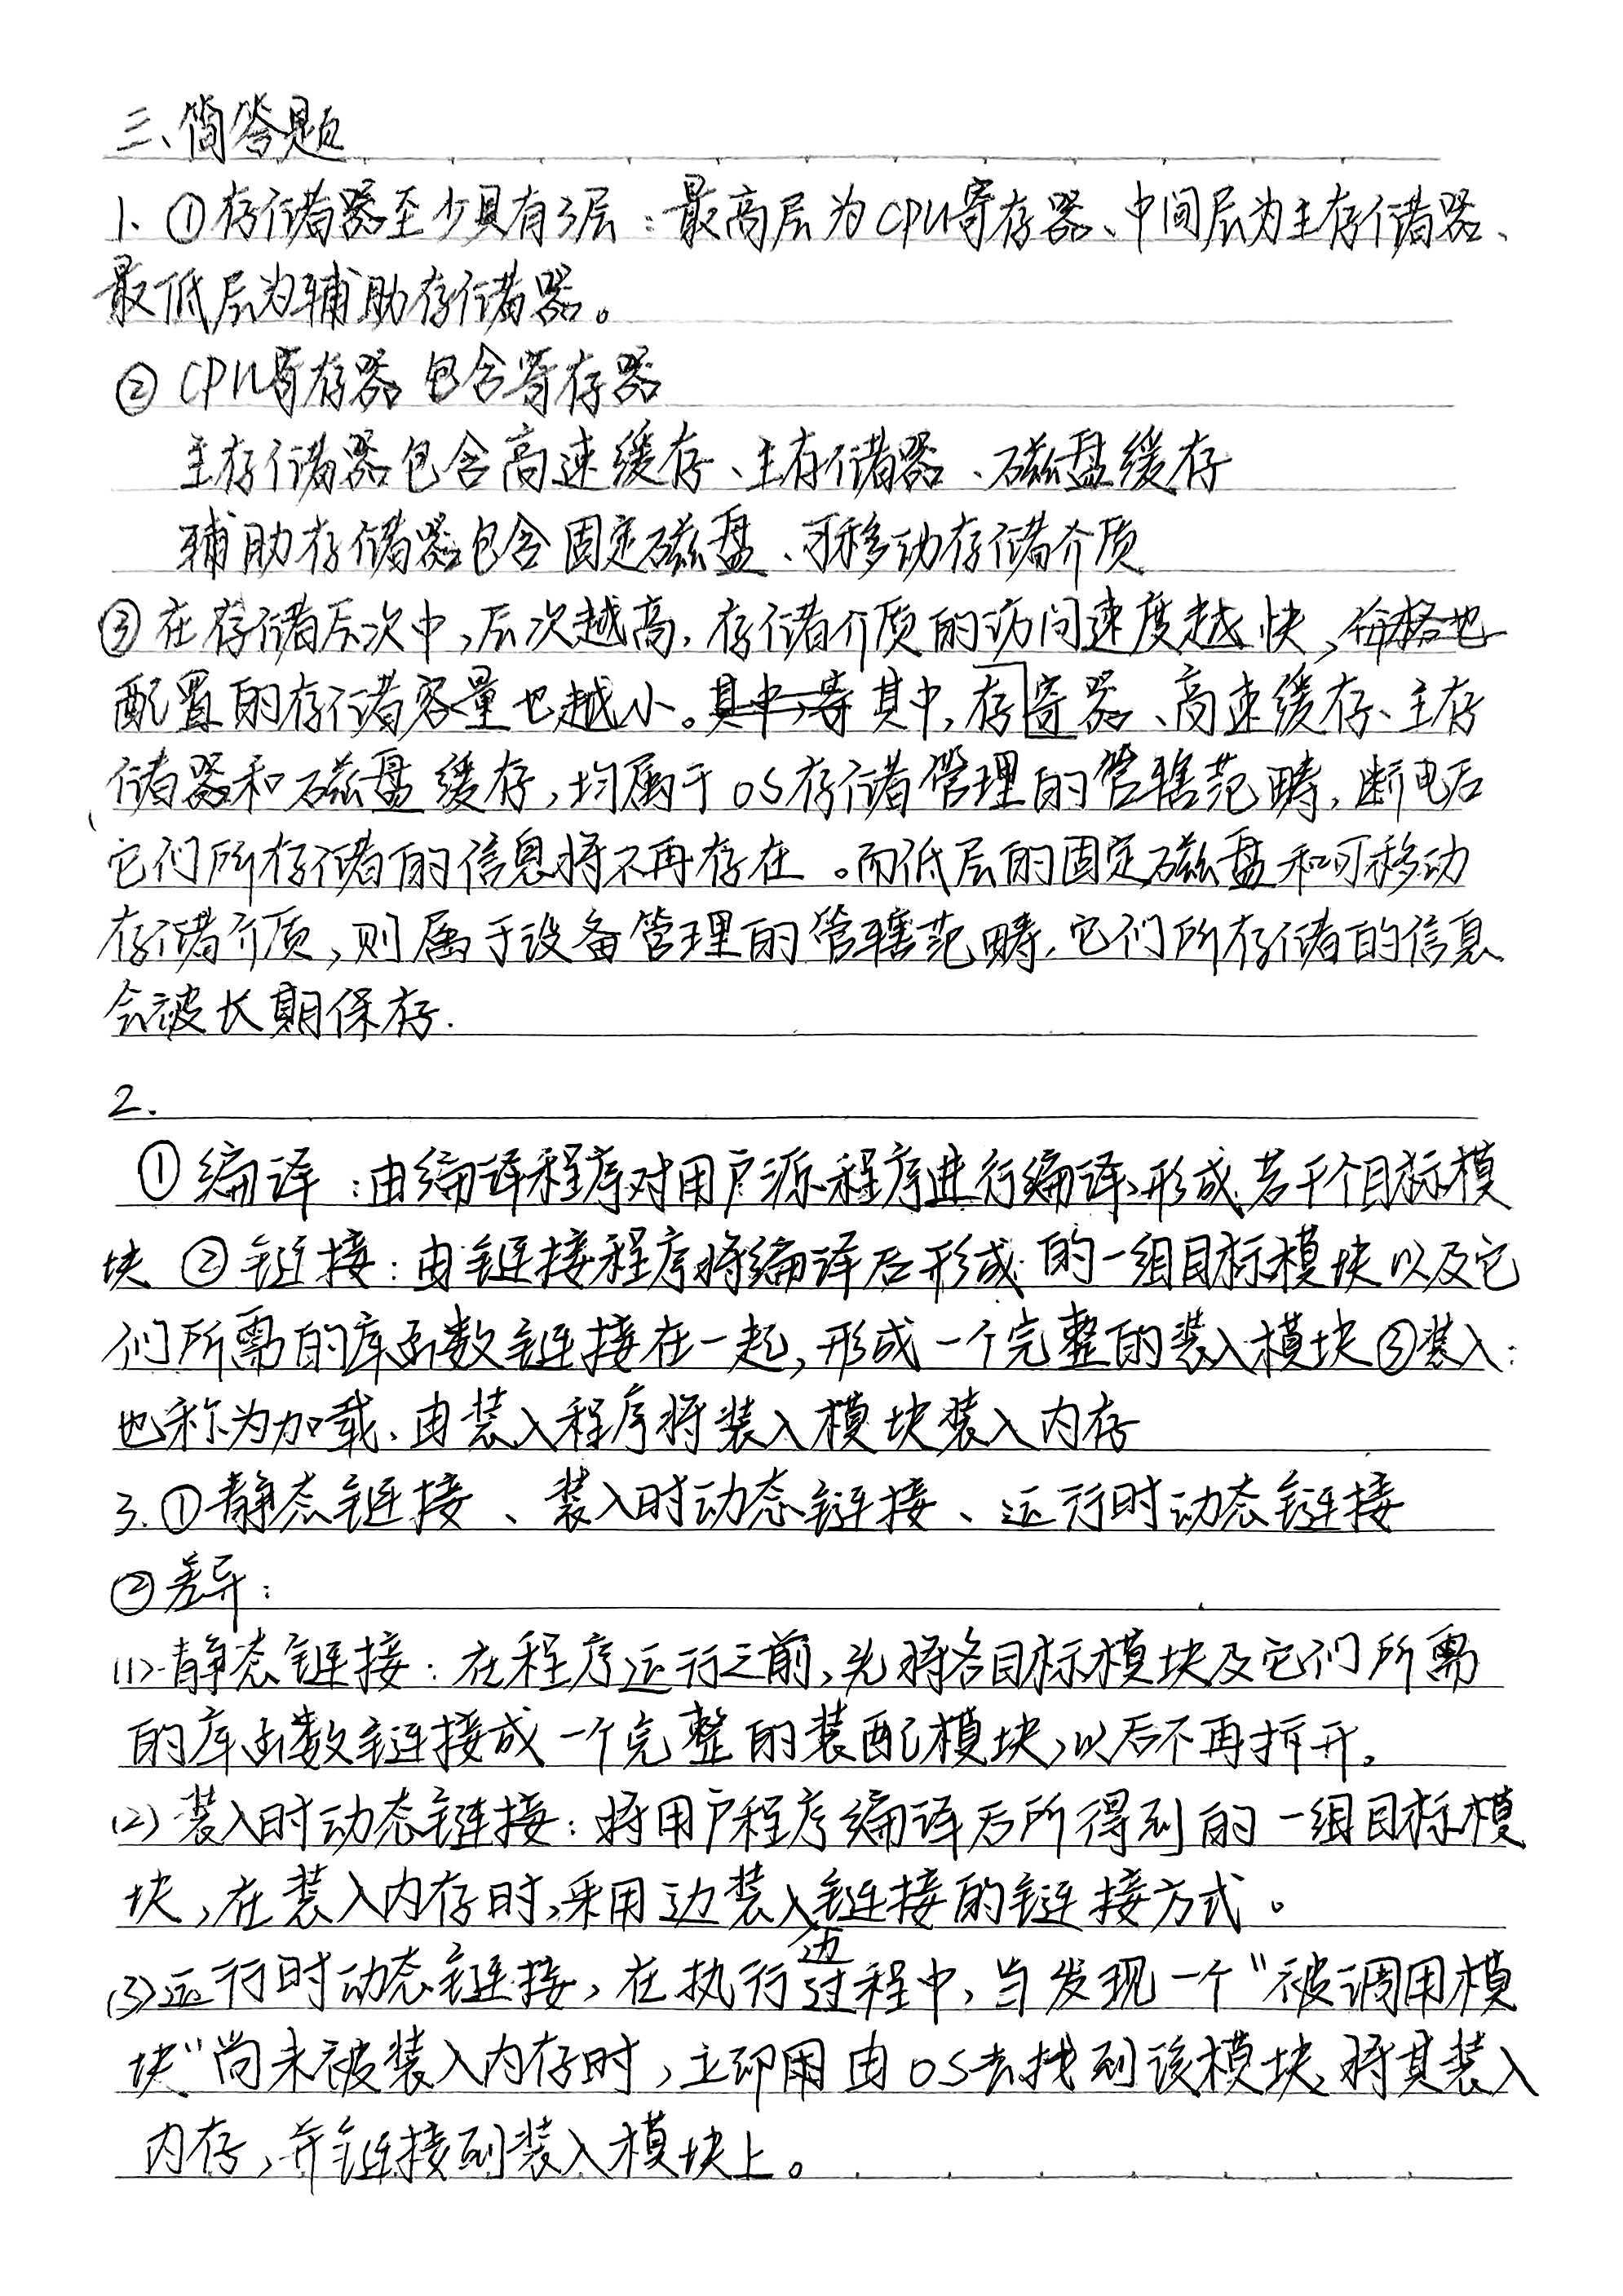 三、简答题
1、①存储器至少具有3层：最高层为CPU寄存器、中间层为主存储器、
最低层为辅助存储器。
② CPU寄存器包含寄存器
主存储器包含高速缓存、主存储器、磁盘缓存
辅助存储器包含固定磁盘、可移动存储介质
③在存储层次中，层次越高，存储介质的访问速度越快，价格也
配置的存储容量也越小。其中，寄其中，存寄器、高速缓存、主存
储器和磁盘缓存，均属于OS存储管理的管辖范畴，断电后
它们所存储的信息将不再存在。而低层的固定磁盘和可移动
存储介质，则属于设备管理的管辖范畴，它们所存储的信息
会被长期保存.
2.
①编译：由编译程序对用户源程序进行编译，形成若干个目标模
块 ②链接：由链接程序将编译后形成的一组目标模块以及它
们所需的库函数链接在一起，形成一个完整的装入模块③装入：
也称为加载、由装入程序将装入模块装入内存
3.①静态链接、装入时动态链接、运行时动态链接
②差异：
(1)静态链接：在程序运行之前，先将各目标模块及它们所需
的库函数链接成一个完整的装配模块，以后不再拆开。
(2)装入时动态链接：将用户程序编译后所得到的一组目标模
块，在装入内存时，采用边装入边链接的链接方式。
(3)运行时动态链接，在执行过程中，当发现一个“被调用模
块”尚未被装入内存时，立即用由OS去找到该模块，将其装入
内存，并链接到装入模块上。